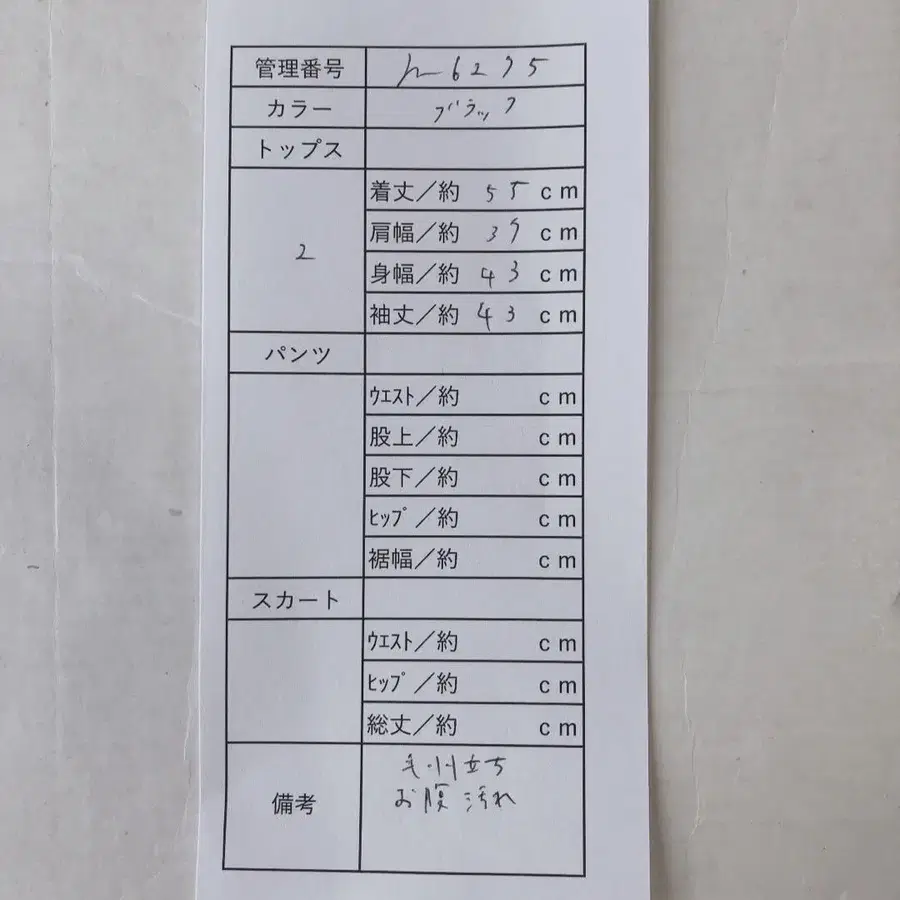 管理番号
カラー ブラック
トップス
2
着丈／約 55 cm
肩幅／約 39 cm
身幅／約 43 cm
袖丈／約 43 cm
パンツ
ｳｴｽﾄ／約 cm
股上／約 cm
股下／約 cm
ﾋｯﾌﾟ／約 cm
裾幅／約 cm
スカート
ｳｴｽﾄ／約 cm
ﾋｯﾌﾟ／約 cm
総丈／約 cm
備考
毛羽立ち
お腹 汚れ